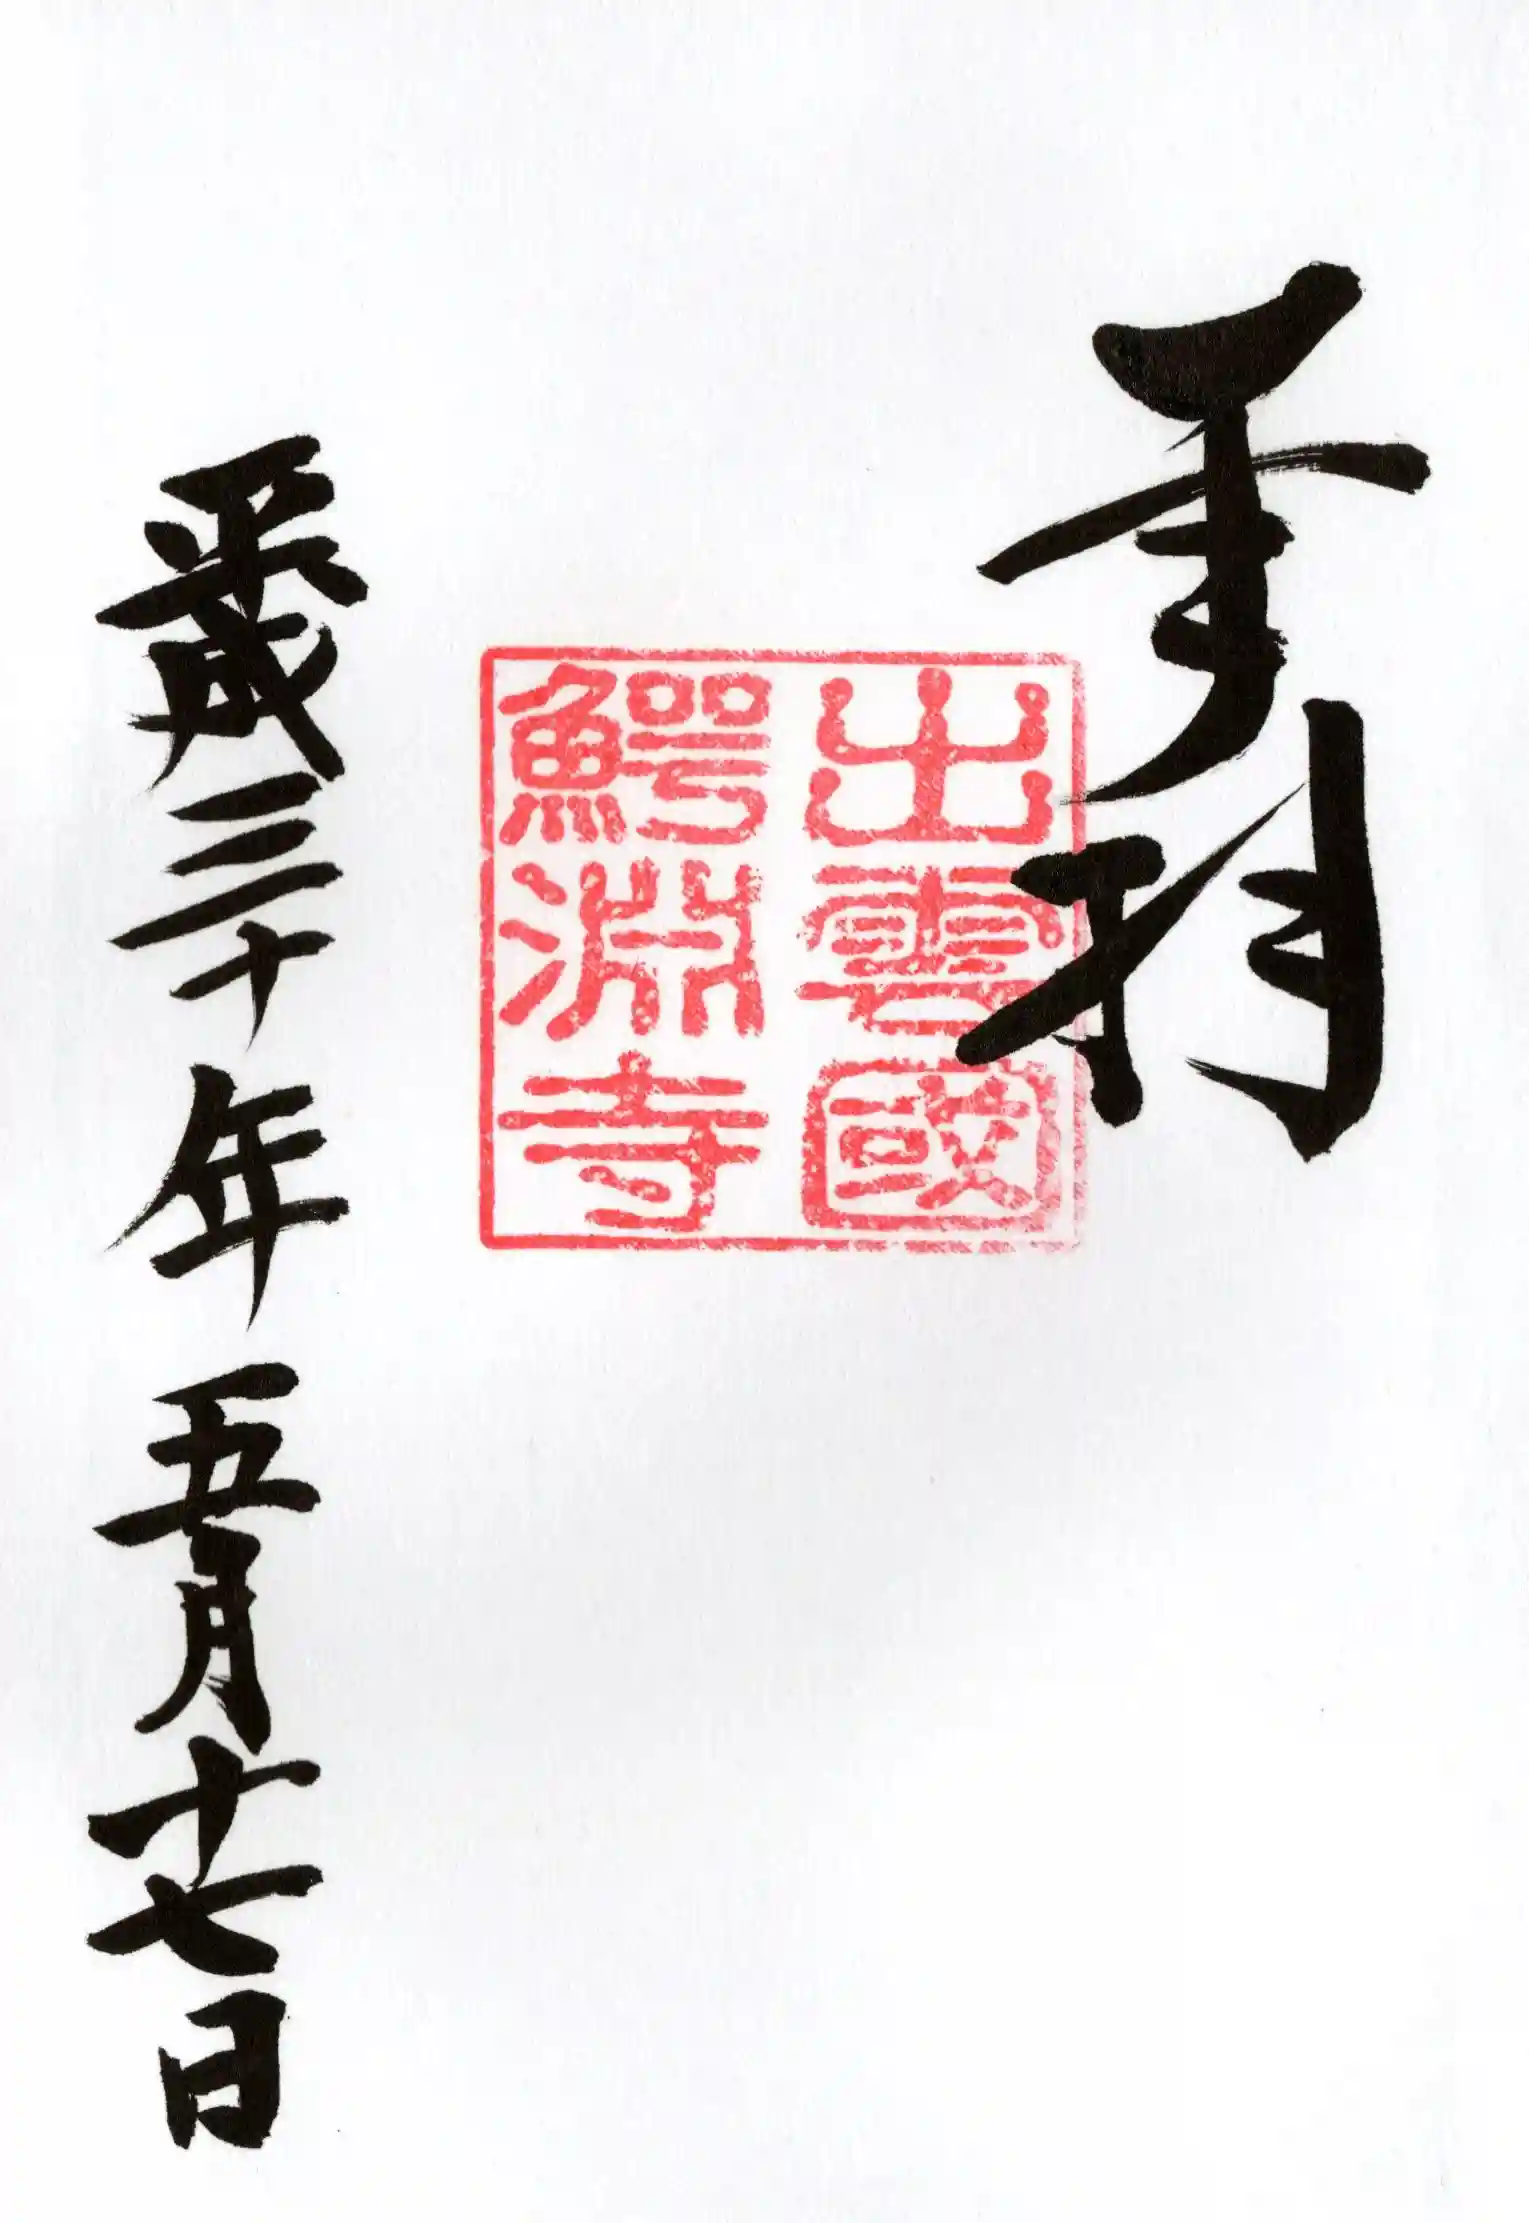 奉拝
出雲國
鰐淵寺
平成三十年五月十七日